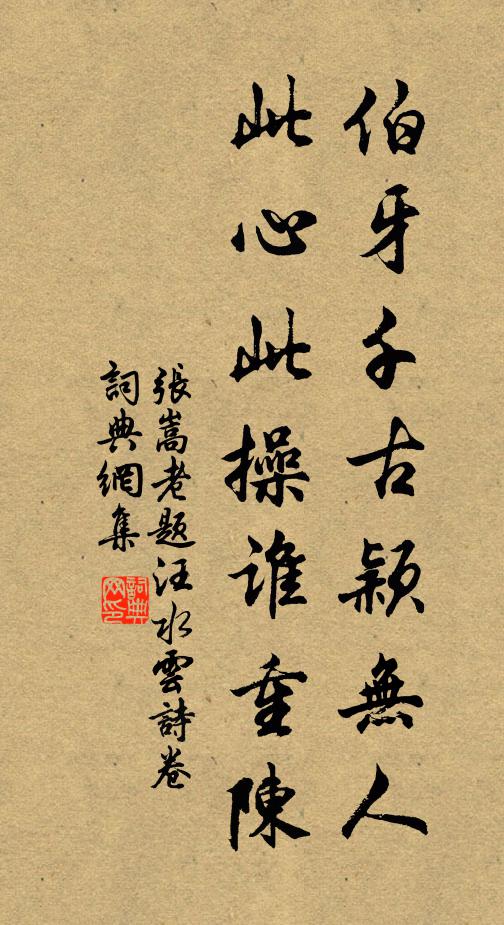 伯牙千古颖無人
此心此操誰重陳
張嵩老題汪水雲詩卷
詞典網集
詞典網印